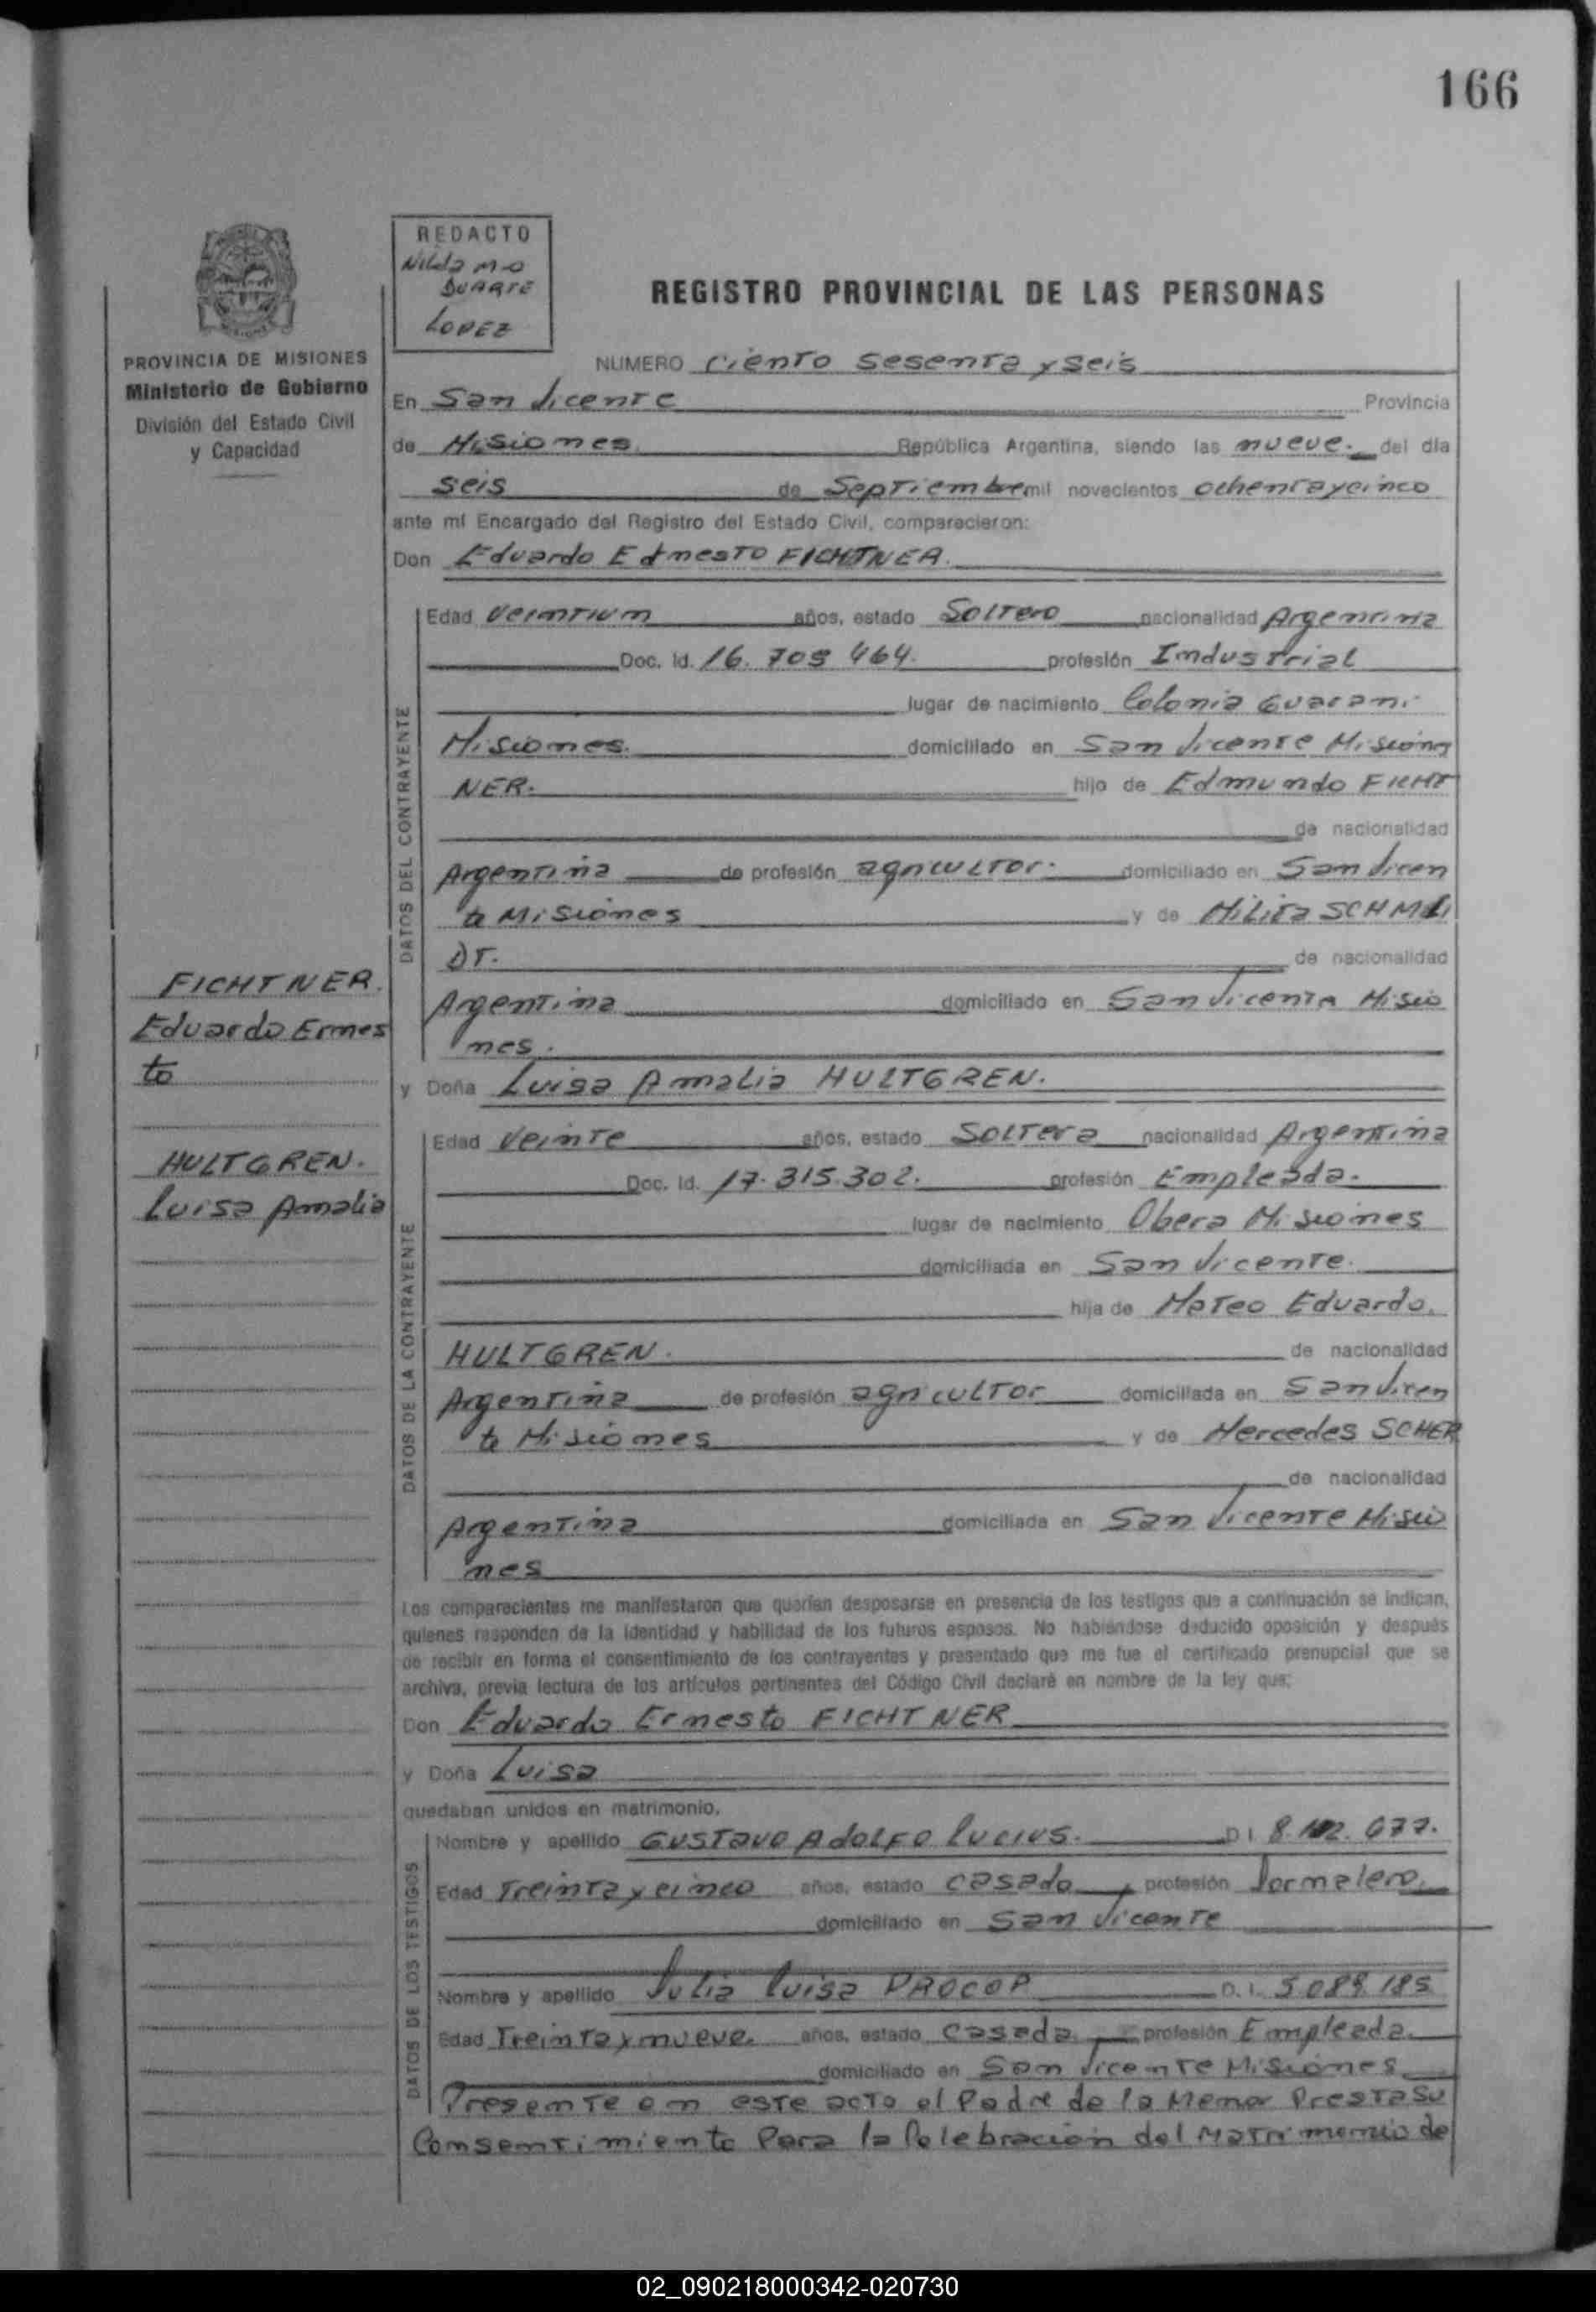 166
REDACTO
Nilda M-O
DUARTE
LOPEZ
REGISTRO PROVINCIAL DE LAS PERSONAS
PROVINCIA DE MISIONES
Ministerio de Gobierno
División del Estado Civil
y Capacidad
NUMERO ciento sesenta y seis
En San Vicente Provincia
de Misiones. República Argentina, siendo las nueve. del día
seis de Septiembre mil novecientos ochenta y cinco
ante mí Encargado del Registro del Estado Civil, comparecieron:
Don Eduardo Ernesto FICHTNER.
DATOS DEL CONTRAYENTE
Edad Veintiun años, estado Soltero nacionalidad Argentina
Doc. Id. 16. 709 464. profesión Industrial
lugar de nacimiento Colonia Guarani
Misiones. domiciliado en San Vicente Misiones
NER. hijo de Edmundo FICHT
de nacionalidad
Argentina de profesión agricultor. domiciliado en San Vicen
te Misiones y de Milita SCHMI
DT. de nacionalidad
Argentina domiciliado en San Vicente Misio
nes.
FICHTNER.
Eduardo Ernes
to
HULTGREN.
Luisa Amalia
y Doña Luisa Amalia HULTGREN.
DATOS DE LA CONTRAYENTE
Edad Veinte años, estado Soltera nacionalidad Argentina
Doc. Id. 17.315.302. profesión Empleada.
lugar de nacimiento Obera Misiones
domiciliada en San Vicente.
hija de Mateo Eduardo.
HULTGREN. de nacionalidad
Argentina de profesión agricultor domiciliada en San Vicen
te Misiones y de Mercedes SCHER
de nacionalidad
Argentina domiciliada en San Vicente Misio
nes
Los comparecientes me manifestaron que querían desposarse en presencia de los testigos que a continuación se indican,
quienes responden de la identidad y habilidad de los futuros esposos. No habiéndose deducido oposición y después
de recibir en forma el consentimiento de los contrayentes y presentado que me fue el certificado prenupcial que se
archiva, previa lectura de los artículos pertinentes del Código Civil declaré en nombre de la ley que:
Don Eduardo Ernesto FICHTNER
y Doña Luisa
quedaban unidos en matrimonio.
DATOS DE LOS TESTIGOS
Nombre y apellido GUSTAVO ADOLFO Lucius. D I. 677.
Edad Treinta y cinco años, estado casado profesión Jornalero.
domiciliado en San Vicente
Nombre y apellido Julia Luisa PROCOP D. I. 5 089. 185
Edad Treinta y nueve. años, estado casada. profesión Empleada.
domiciliado en San Vicente Misiones
Presente en este acto el Padre de la Menor Presta su
Consentimiento Para la Celebracion del Matrimonio de
02_090218000342-020730